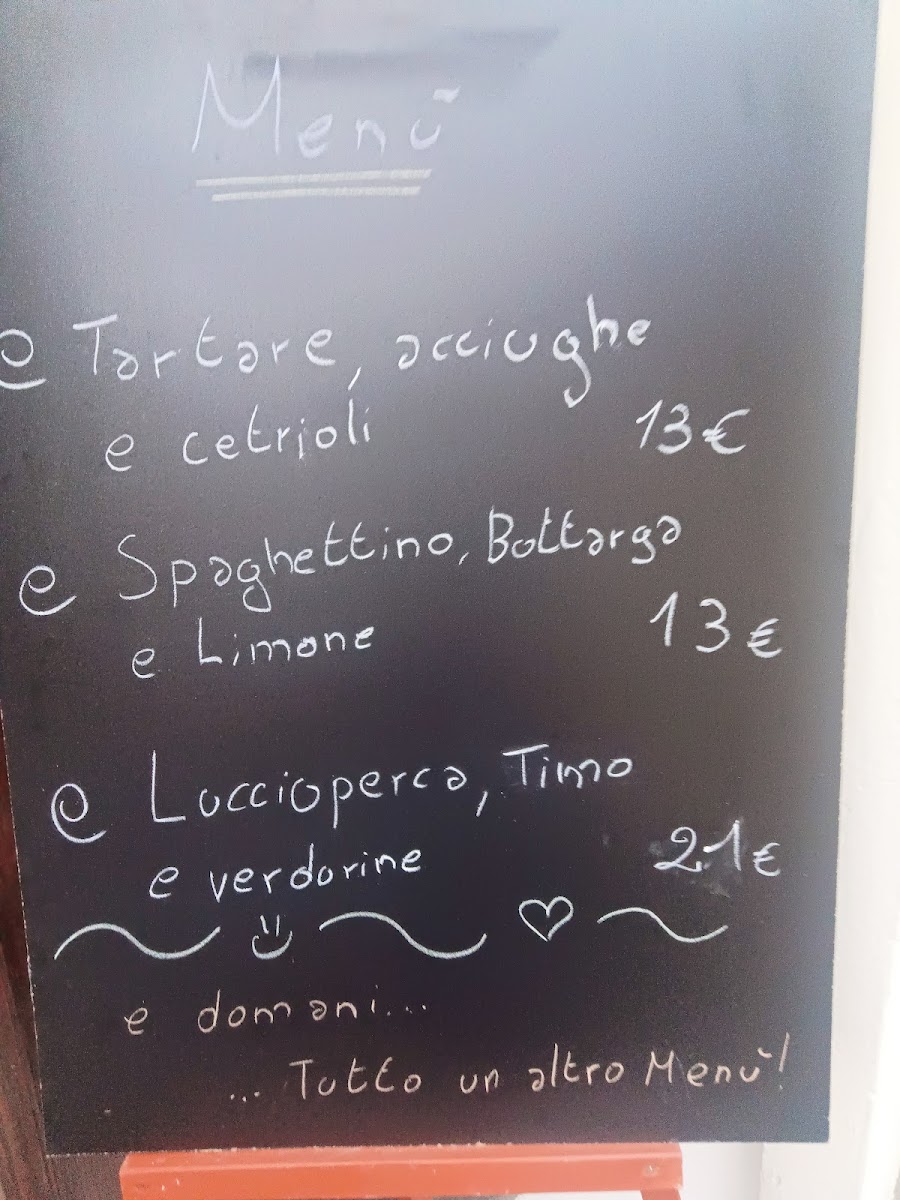 Menù
Tartare, acciughe
e cetrioli 13€
Spaghettino, Bottarga
e Limone 13€
Luccioperca, Timo
e verdurine 21€
e domani...
... Tutto un altro Menù!